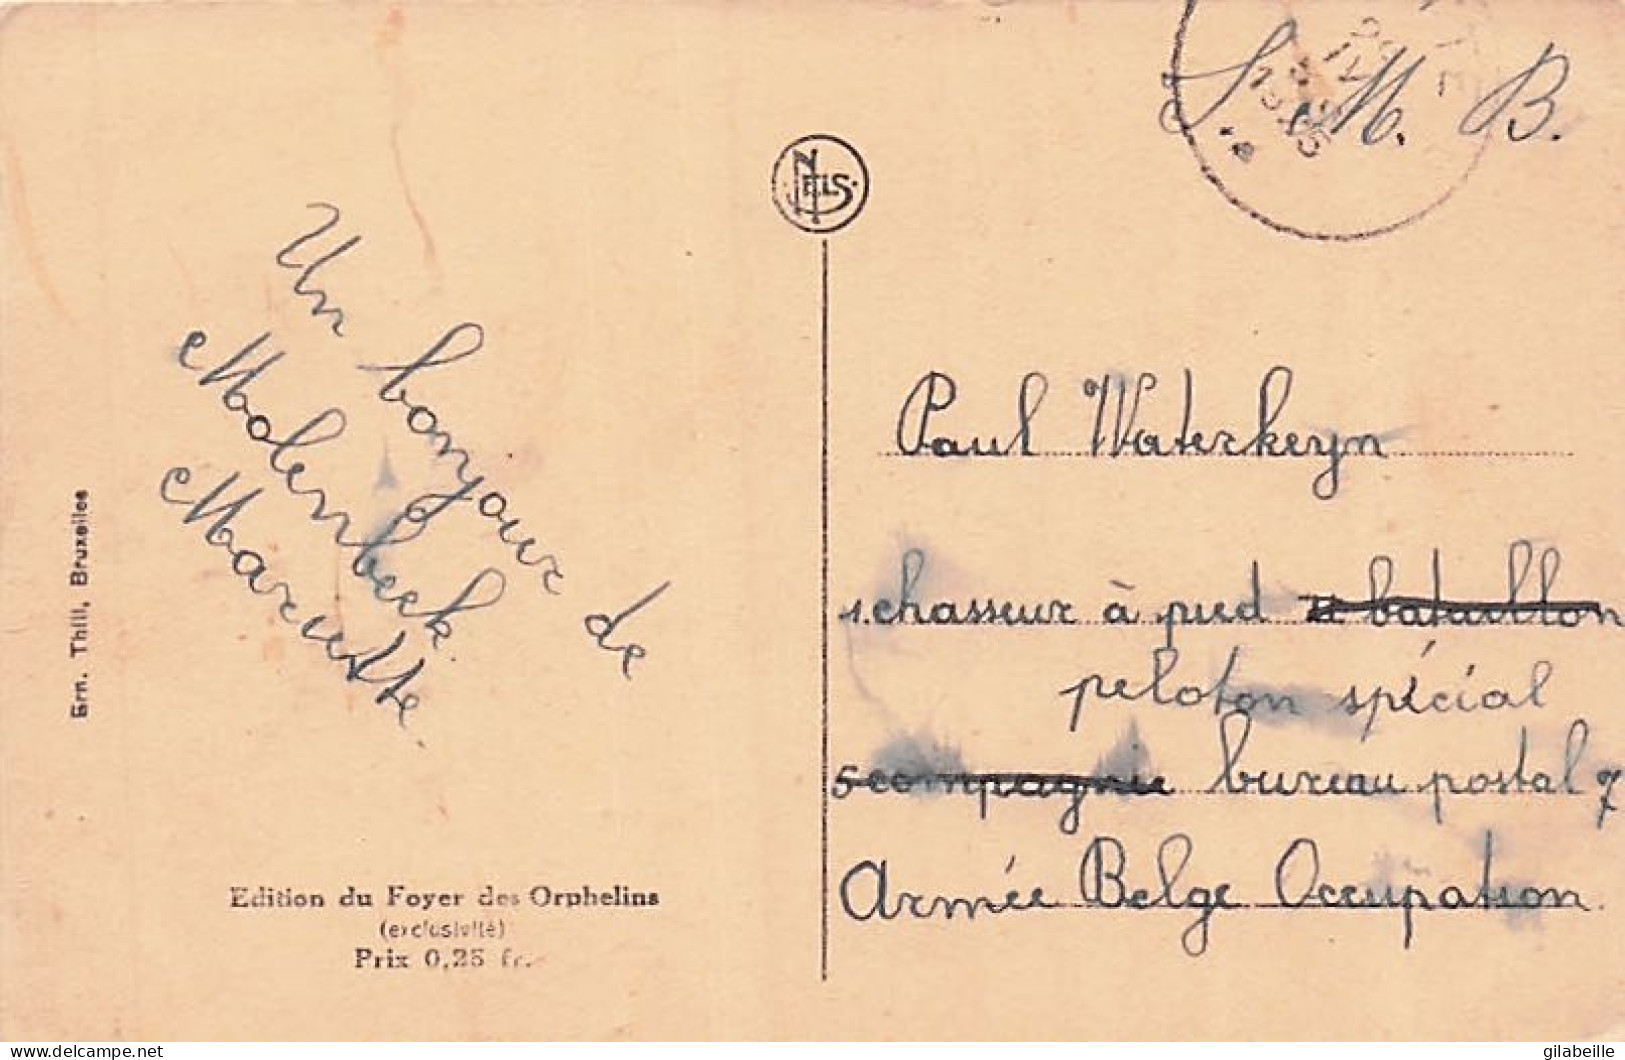 S. M. B.
NELS
Un bonjour de
Molenbeek
Mariette.
Ern. Thill, Bruxelles
Edition du Foyer des Orphelins
(exclusivité)
Prix 0,25 fr.
Paul Waterkeyn
1. chasseur à pied II bataillon
peloton spécial
5 compagnie bureau postal 7
Armée Belge Occupation.
www.delcampe.net
gilabeille